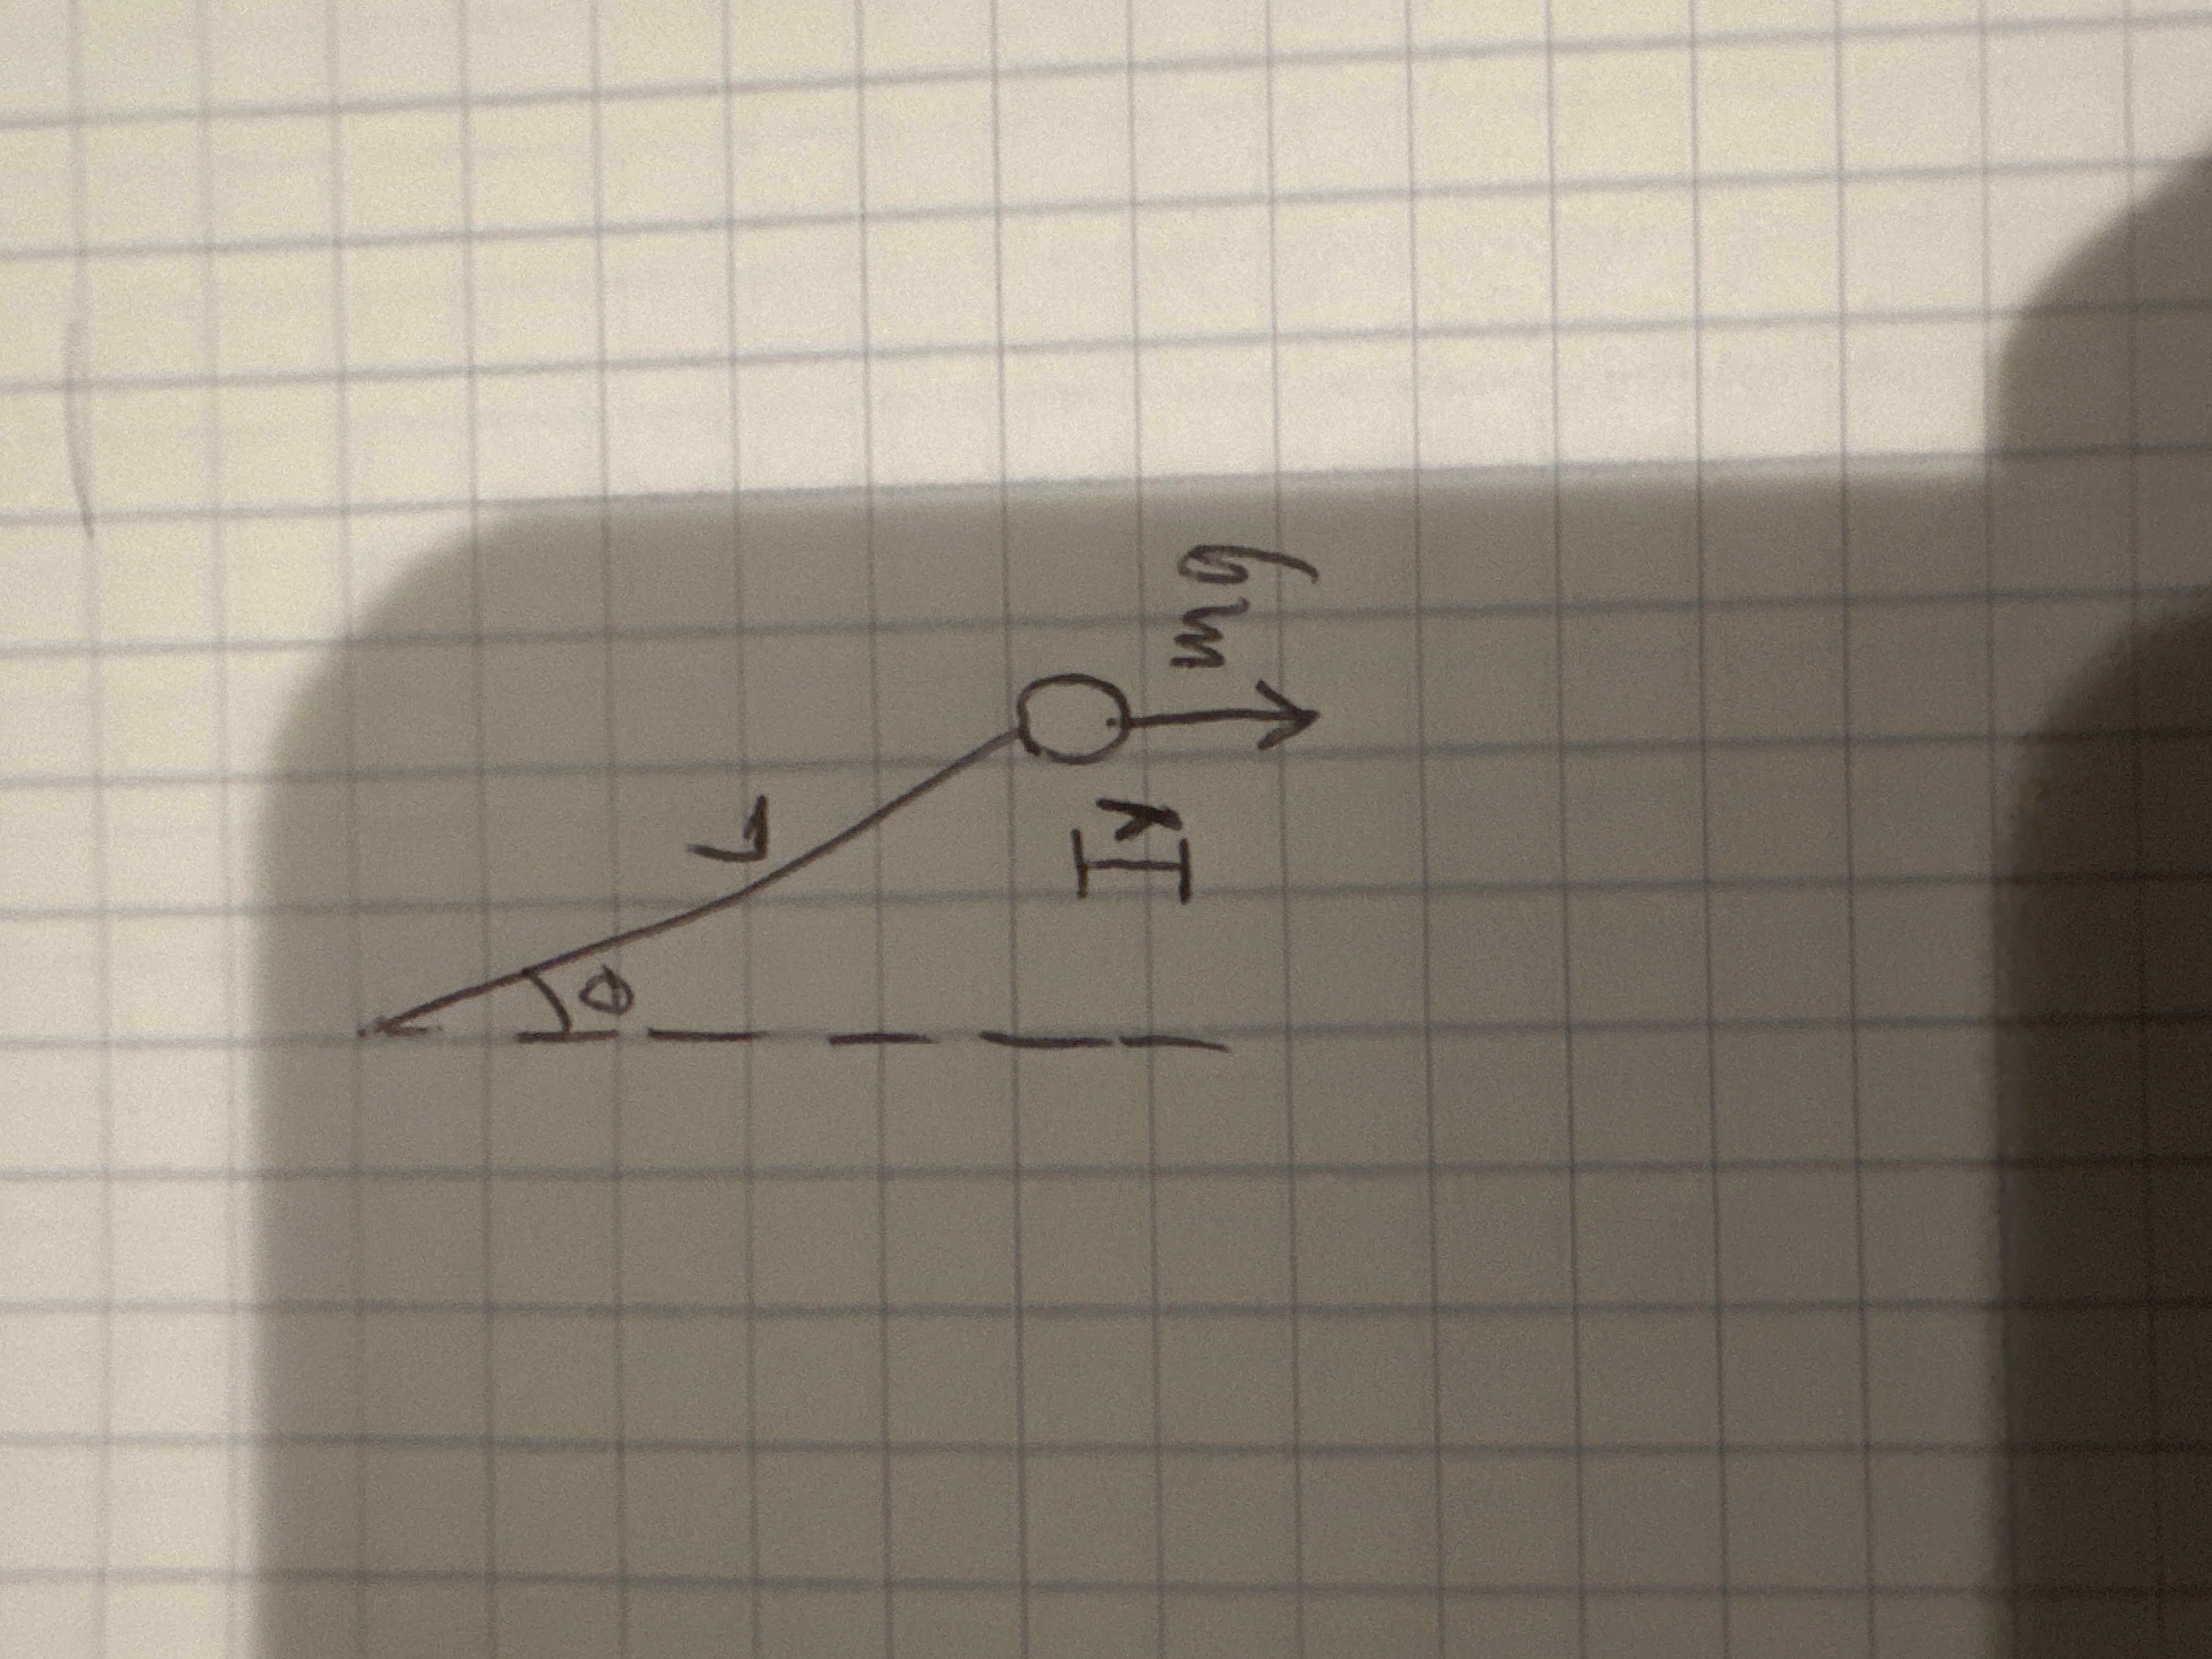 θ
L
Iy
mg